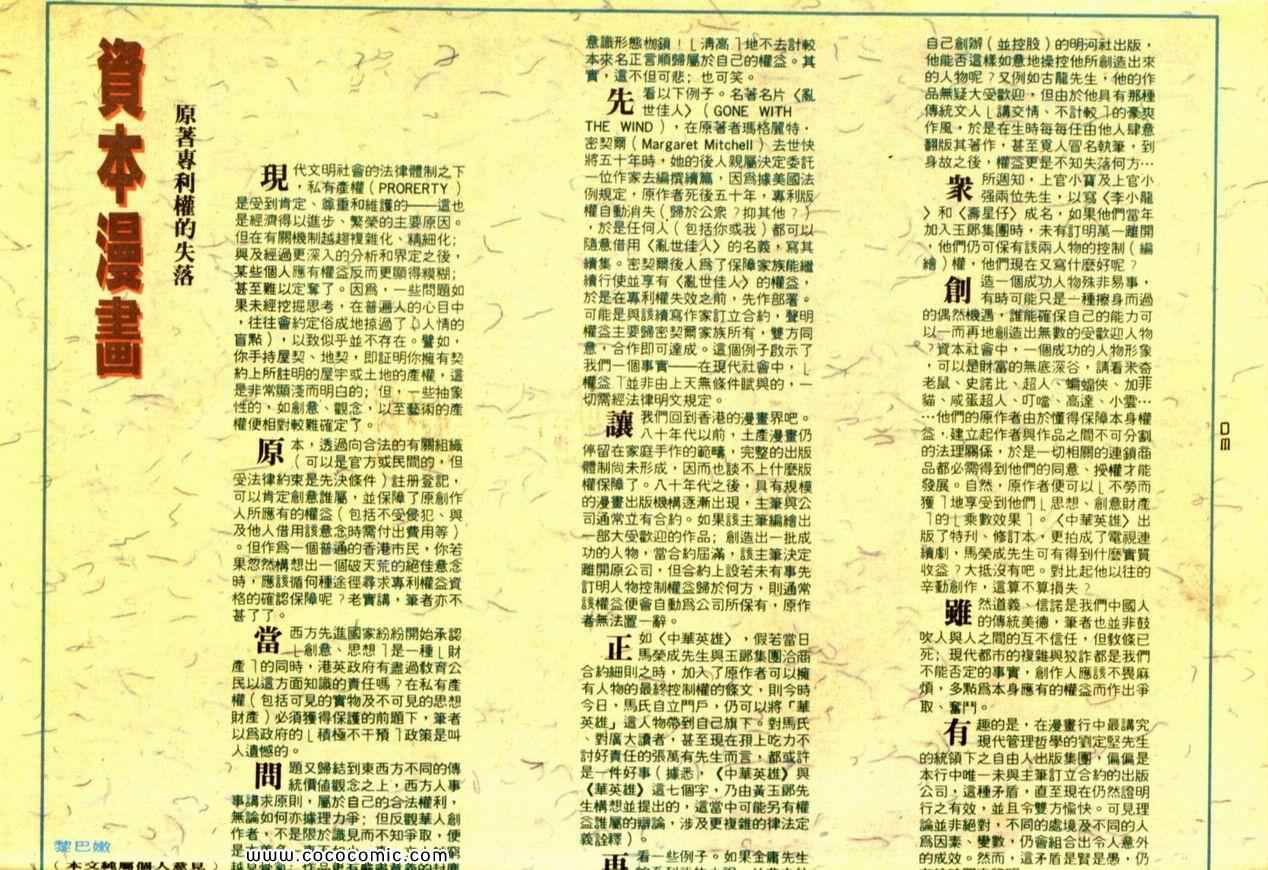 資本漫畫
原著專利權的失落
現代文明社會的法律體制之下
，私有產權（PRORERTY）
是受到肯定、尊重和維護的——這也
是經濟得以進步、繁榮的主要原因。
但在有關機制越趨複雜化、精細化；
與及經過更深入的分析和界定之後，
某些個人應有權益反而更顯得糢糊；
甚至難以定奪了。因爲，一些問題如
果未經挖掘思考，在普遍人的心目中
，往往會約定俗成地掠過了（人情的
盲點），以致似乎並不存在。譬如，
你手持屋契、地契，即証明你擁有契
約上所註明的屋宇或土地的產權，這
是非常顯淺而明白的；但，一些抽象
性的，如創意、觀念，以至藝術的產
權便相對較難確定了。
原本，透過向合法的有關組織
（可以是官方或民間的，但
受法律約束是先決條件）註册登記，
可以肯定創意誰屬，並保障了原創作
人所應有的權益（包括不受侵犯、與
及他人借用該意念時需付出費用等）
。但作爲一個普通的香港市民，你若
果忽然構想出一個破天荒的絕佳意念
時，應該循何種途徑尋求專利權益資
格的確認保障呢？老實講，筆者亦不
甚了了。
當西方先進國家紛紛開始承認
﹁創意、思想﹂是一種﹁財
產﹂的同時，港英政府有盡過敎育公
民以這方面知識的責任嗎？在私有產
權（包括可見的實物及不可見的思想
財產）必須獲得保護的前題下，筆者
以爲政府的﹁積極不干預﹂政策是叫
人遺憾的。
問題又歸結到東西方不同的傳
統價值觀念之上，西方人事
事講求原則，屬於自己的合法權利，
無論如何亦據理力爭；但反觀華人創
作者，不是限於識見而不知爭取，便
意識形態枷鎖！﹁清高﹂地不去計較
本來名正言順歸屬於自己的權益。其
實，這不但可悲；也可笑。
先看以下例子。名著名片〈亂
世佳人〉（GONE WITH
THE WIND），在原著者瑪格麗特．
密契爾（Margaret Mitchell）去世快
將五十年時，她的後人親屬決定委託
一位作家去編撰續篇，因爲據美國法
例規定，原作者死後五十年，專利版
權自動消失（歸於公衆？抑其他？）
，於是任何人（包括你或我）都可以
隨意借用〈亂世佳人〉的名義，寫其
續集。密契爾後人爲了保障家族能繼
續行使並享有〈亂世佳人〉的權益，
於是在專利權失效之前，先作部署。
可能是與該續寫作家訂立合約，聲明
權益主要歸密契爾家族所有，雙方同
意，合作即可達成。這個例子啟示了
我們一個事實——在現代社會中，﹁
權益﹂並非由上天無條件賦與的，一
切需經法律明文規定。
讓我們回到香港的漫畫界吧。
八十年代以前，土產漫畫仍
停留在家庭手作的範疇，完整的出版
體制尚未形成，因而也談不上什麼版
權保障了。八十年代之後，具有規模
的漫畫出版機構逐漸出現，主筆與公
司通常立有合約。如果該主筆編繪出
一部大受歡迎的作品；創造出一批成
功的人物，當合約屆滿，該主筆決定
離開原公司，但合約上設若未有事先
訂明人物控制權益歸於何方，則通常
該權益便會自動爲公司所保有，原作
者無法置一辭。
正如〈中華英雄〉，假若當日
馬榮成先生與玉郎集團洽商
合約細則之時，加入了原作者可以擁
有人物的最終控制權的條文，則今時
今日，馬氏自立門戶，仍可以將「華
英雄」這人物帶到自己旗下。對馬氏
、對廣大讀者，甚至現在孭上吃力不
討好責任的張萬有先生而言，都或許
是一件好事（據悉，《中華英雄》與
《華英雄》這七個字，乃由黃玉郎先
生構想並提出的，這當中可能另有權
益誰屬的辯論，涉及更複雜的律法定
義詮釋）。
再看一些例子。如果金庸先生
自己創辦（並控股）的明河社出版，
他能否這樣如意地操控他所創造出來
的人物呢？又例如古龍先生，他的作
品無疑大受歡迎，但由於他具有那種
傳統文人﹁講交情、不計較﹂的豪爽
作風，於是在生時每每任由他人肆意
翻版其著作，甚至覓人冒名執筆，到
身故之後，權益更是不知失落何方…
衆所週知，上官小寶及上官小
强兩位先生，以寫〈李小龍
〉和〈壽星仔〉成名，如果他們當年
加入玉郎集團時，未有訂明萬一離開
，他們仍可保有該兩人物的控制（編
繪）權，他們現在又寫什麼好呢？
創造一個成功人物殊非易事，
有時可能只是一種擦身而過
的偶然機遇，誰能確保自己的能力可
以一而再地創造出無數的受歡迎人物
？資本社會中，一個成功的人物形象
，可以是財富的無底深谷，請看米奇
老鼠、史諾比、超人、蝙蝠俠、加菲
貓、咸蛋超人、叮噹、高達、小雲…
…他們的原作者由於懂得保障本身權
益，建立起作者與作品之間不可分割
的法理關係，於是一切相關的連鎖商
品都必需得到他們的同意、授權才能
發展。自然，原作者便可以﹁不勞而
獲﹂地享受到他們﹁思想、創意財產
﹂的﹁乘數效果﹂。〈中華英雄〉出
版了特刊、修訂本，更拍成了電視連
續劇，馬榮成先生可有得到什麼實質
收益？大抵沒有吧。對比起他以往的
辛勤創作，這算不算損失？
雖然道義、信諾是我們中國人
的傳統美德，筆者也並非鼓
吹人與人之間的互不信任，但敎條已
死；現代都市的複雜與狡詐都是我們
不能否定的事實，創作人應該不畏麻
煩，多點爲本身應有的權益而作出爭
取、奮鬥。
有趣的是，在漫畫行中最講究
現代管理哲學的劉定堅先生
的統領下之自由人出版集團，偏偏是
本行中唯一未與主筆訂立合約的出版
公司，這種矛盾，直至現在仍然證明
行之有效，並且令雙方愉快。可見理
論並非絕對，不同的處境及不同的人
爲因素、變數，仍會組合出令人意外
的成效。然而，這矛盾是賢是愚，仍
黎巴嫩
（本文純屬個人意見）
www.cococomic.com